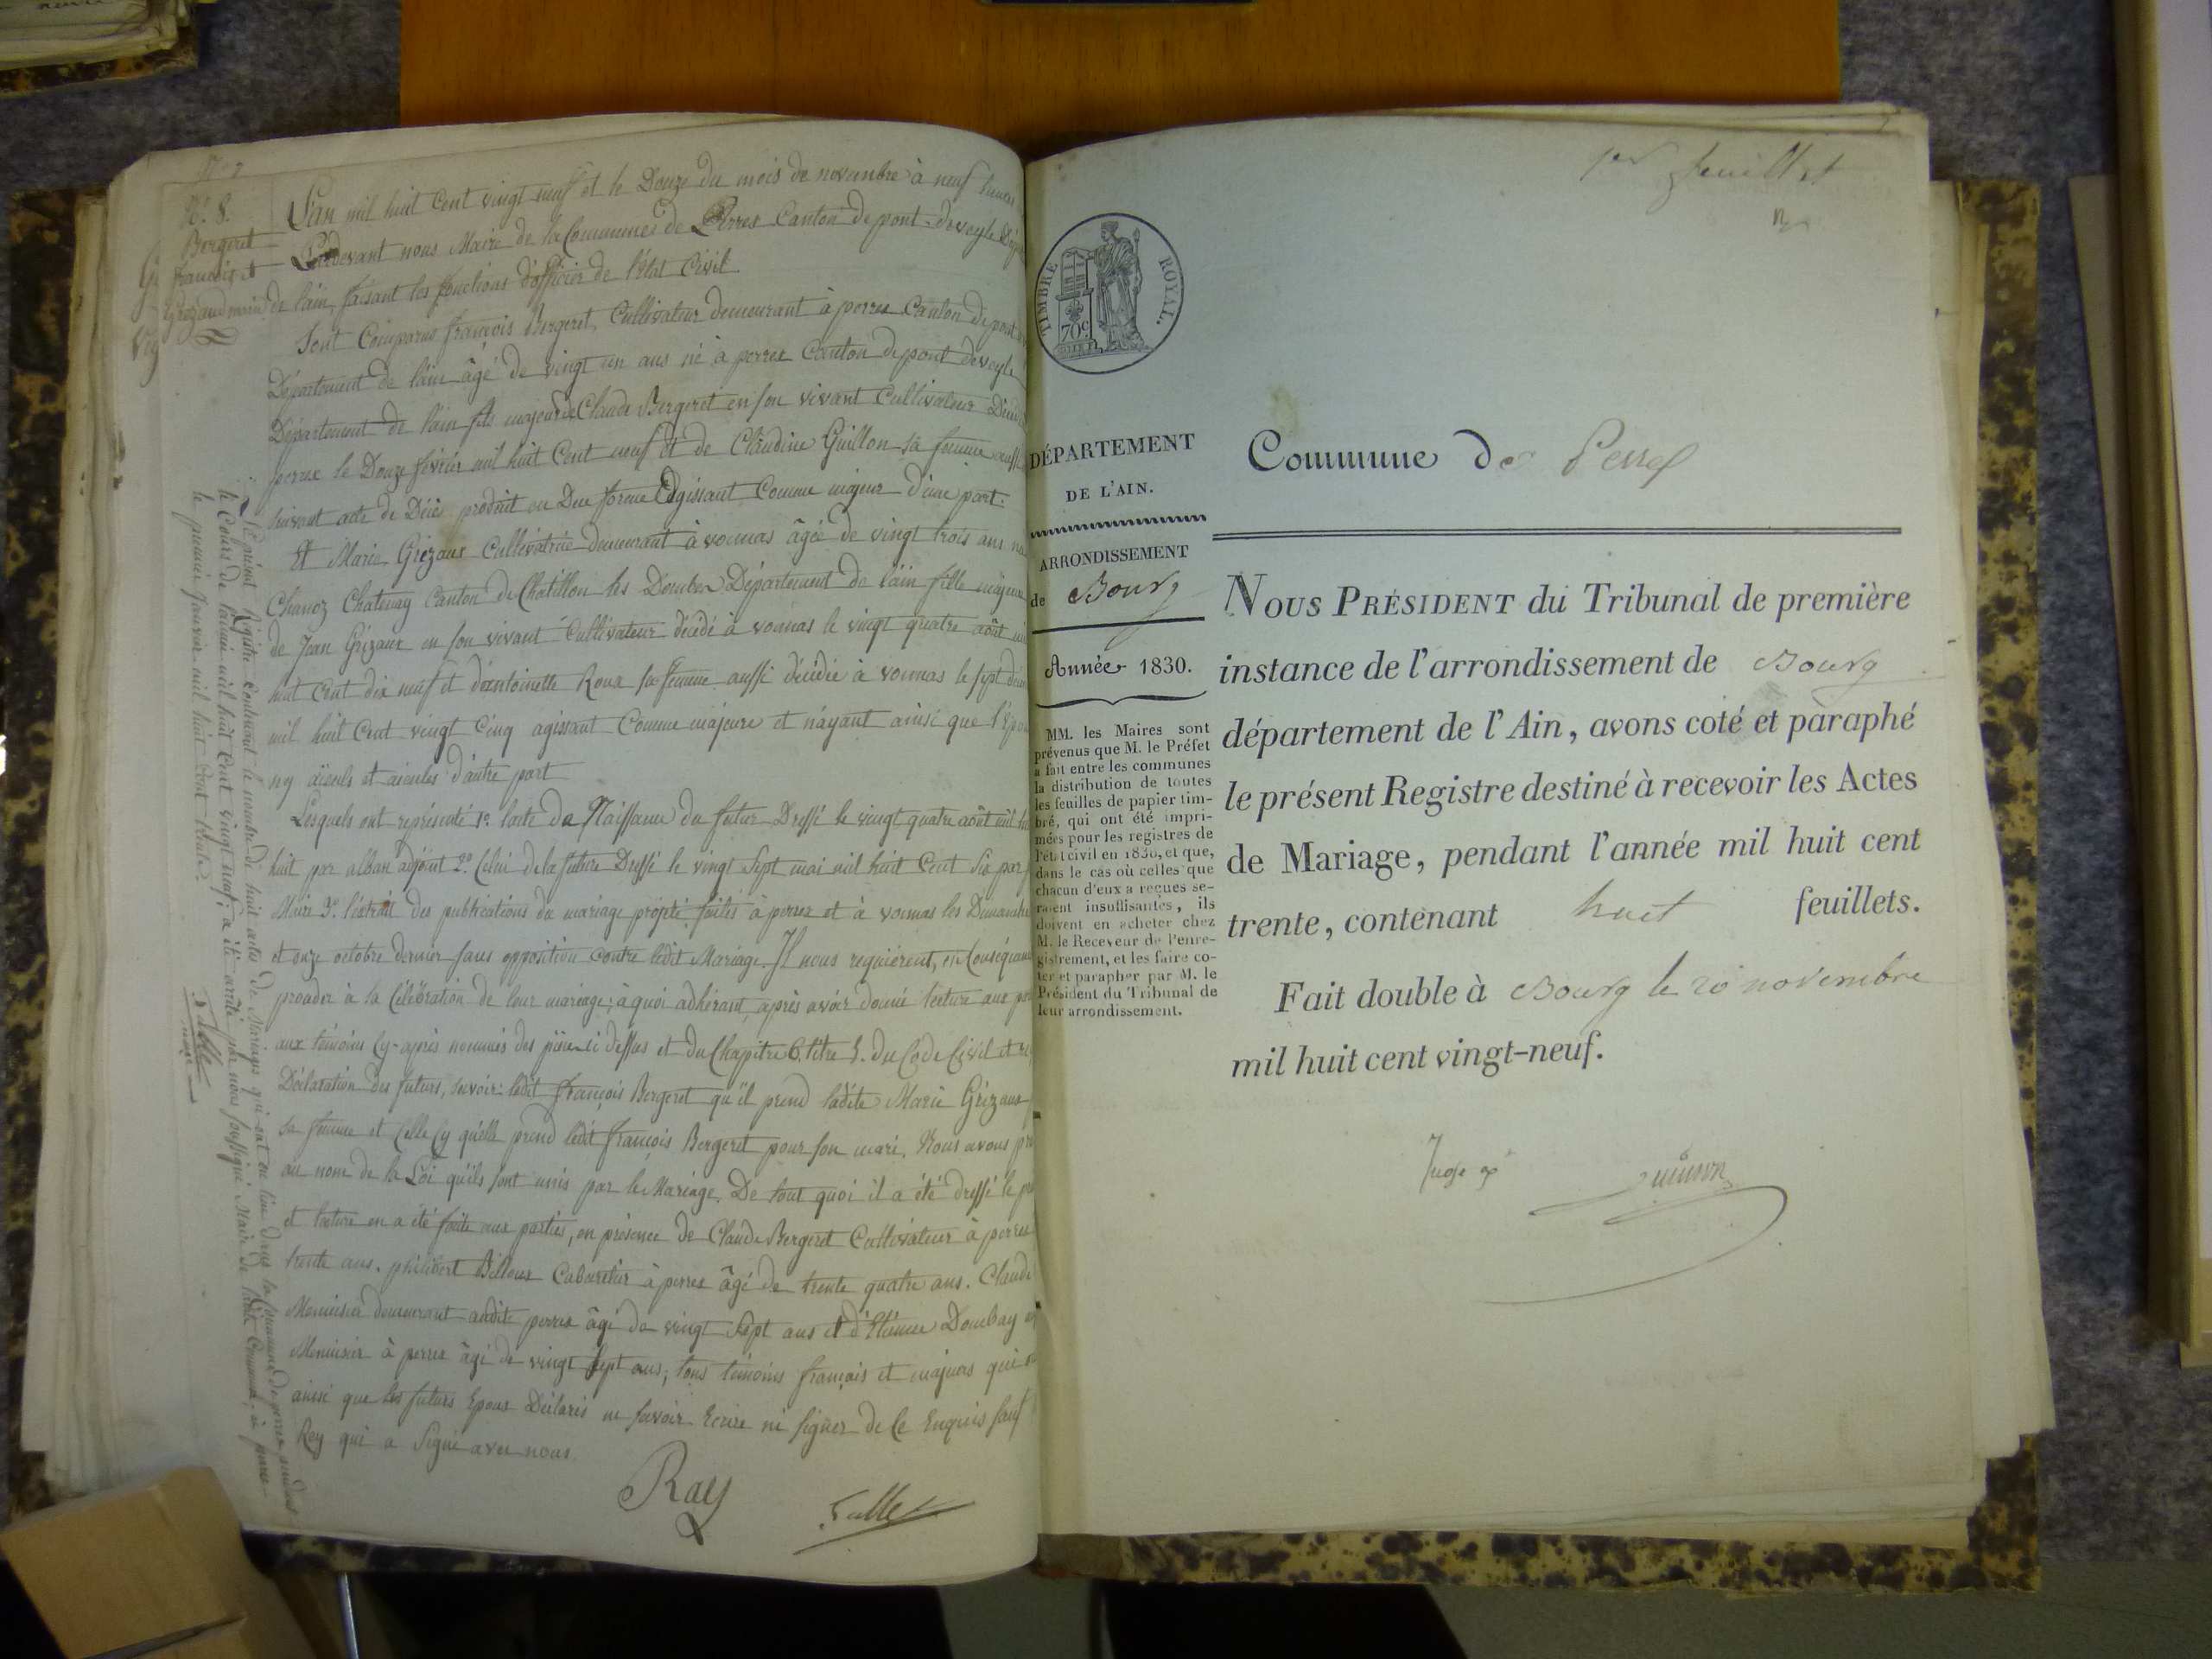 N.º 8.
Bergeret
françois et
Grézaud marie
L'an mil huit Cent vingt neuf et le Douze du mois de novembre à neuf heures
Pardevant nous Maire de la Commune de Perrex Canton de pont-deveyle
de l'ain, faisant les fonctions d'officier de l'état Civil
Sont Comparus françois Bergeret, Cultivateur demeurant à perrex Canton de pont
Département de l'ain âgé de vingt un ans né à perrex Canton de pont deveyle
Département de l'ain fils majeur de Claude Bergeret en son vivant Cultivateur
perrex le Douze février mil huit Cent neuf et de Claudine Guillon sa femme aussi
suivant acte de Décès produit en Due forme Agissant Comme majeur d'une part.
Et Marie Grézaux Cultivatrice demeurant à vonnas âgée de vingt trois ans
Chanoz Chatenay Canton de Chatillon les Dombes Département de l'ain fille majeure
de Jean Grézaux en son vivant Cultivateur décédé à vonnas le vingt quatre août
huit Cent dix neuf et d'antoinette Roux sa femme aussi décédée à vonnas le sept
mil huit Cent vingt Cinq agissant Comme majeure et n'ayant ainsi que l'
ny aïeuls et aïeules d'autre part
Lesquels ont représenté 1º. l'acte de Naissance du futur Dressé le vingt quatre août mil
huit par alban adjoint 2º. Celui de la future Dressé le vingt Sept mai mil huit Cent Six par
Maire 3º. l'extrait des publications de mariage faites à perrex et à vonnas les Dimanche
et onze octobre dernier sans opposition contre ledit Mariage. Il nous requièrent, en Conséquence
procéder à la Célébration de leur mariage; à quoi adhérant, après avoir donné lecture aux
aux témoins Cy-après nommés des pièces ci dessus et du Chapitre 6. titre 5. du Code Civil et
Déclaration des futurs, savoir: ledit françois Bergeret qu'il prend ladite Marie Grézaux
sa femme et Celle Cy qu'elle prend ledit françois Bergeret pour son mari. Nous avons
au nom de la Loi qu'ils sont unis par le Mariage. De tout quoi il a été dressé le
et lecture en a été faite aux parties, en présence de Claude Bergeret Cultivateur à perrex
trente ans. philibert Billoux Cabaretier à perrex âgé de trente quatre ans. Claude
Menuisier demeurant audit perrex âgé de vingt Sept ans et d'Etienne Dombay
Menuisier à perrex âgé de vingt Sept ans; tous témoins français et majeurs qui
ainsi que les futurs Epoux Déclarés ne savoir Ecrire ni Signer de Ce Enquis sauf
Rey qui a Signé avec nous.
Ray
Le présent Régistre Contenant le nombre de huit actes de Mariage qui ont eu lieu dans la Commune de perrex pendant
le Cours de l'année mil huit Cent vingt neuf; a été arrêté par nous soussigné Maire de ladite Commune, à perrex
le premier Janvier mil huit Cent trente.
1er feuillet
TIMBRE ROYAL.
70 c.
DÉPARTEMENT
DE L'AIN.
ARRONDISSEMENT
de Bourg
Année 1830.
MM. les Maires sont
prévenus que M. le Préfet
a fait entre les communes
la distribution de toutes
les feuilles de papier tim-
bré, qui ont été impri-
mées pour les registres de
l'état civil en 1830, et que,
dans le cas où celles que
chacun d'eux a reçues se-
raient insuffisantes, ils
doivent en acheter chez
M. le Receveur de l'enre-
gistrement, et les faire co-
ter et parapher par M. le
Président du Tribunal de
leur arrondissement.
Commune de Perrex
NOUS PRÉSIDENT du Tribunal de première
instance de l'arrondissement de Bourg
département de l'Ain, avons coté et paraphé
le présent Registre destiné à recevoir les Actes
de Mariage, pendant l'année mil huit cent
trente, contenant huit feuillets.
Fait double à Bourg le 20 novembre
mil huit cent vingt-neuf.
Juge